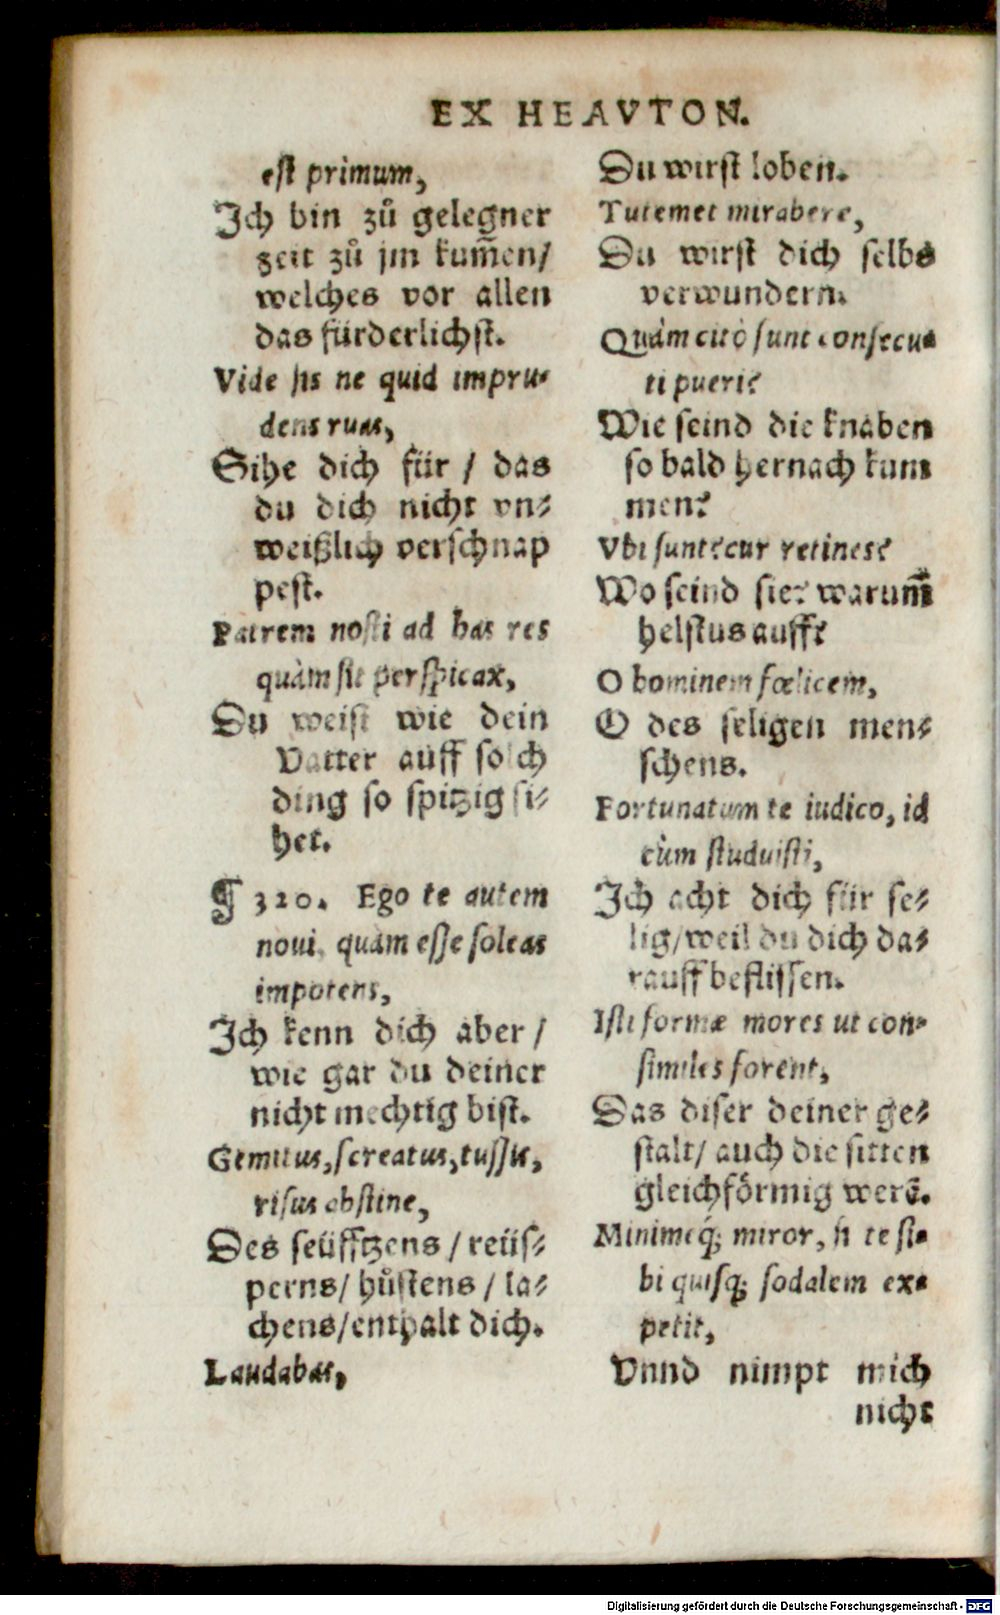 EX HEAVTON.
est primum,
Ich bin zů gelegner
zeit zů jm kum̃en/
welches vor allen
das fürderlichst.
Vide sis ne quid impru-
dens ruas,
Sihe dich für / das
du dich nicht vn-
weißlich verschnap
pest.
Patrem nosti ad has res
quàm sit perspicax,
Du weist wie dein
Vatter auff solch
ding so spitzig si-
het.
¶ 320. Ego te autem
novi, quàm esse soleas
impotens,
Ich kenn dich aber /
wie gar du deiner
nicht mechtig bist.
Gemitus, screatus, tussis,
risus abstine,
Des seüfftzens / reüs-
perns/ hůstens / la-
chens/enthalt dich.
Laudabas,
Du wirst loben.
Tutemet mirabere,
Du wirst dich selbs
verwundern.
Quàm citò sunt consecu-
ti pueri?
Wie seind die knaben
so bald hernach kum
men?
Vbi sunt? cur retines?
Wo seind sie? warum̃
helstus auff?
O hominem fœlicem,
O des seligen men-
schens.
Fortunatum te iudico, id
cùm studuisti,
Ich acht dich für se-
lig/weil du dich da-
rauff beflissen.
Isti formæ mores ut con-
similes forent,
Das diser deiner ge-
stalt/ auch die sitten
gleichförmig werẽ.
Minimeq́; miror, si te si-
bi quisq; sodalem ex-
petit,
Vnnd nimpt mich
nicht
Digitalisierung gefördert durch die Deutsche Forschungsgemeinschaft - DFG